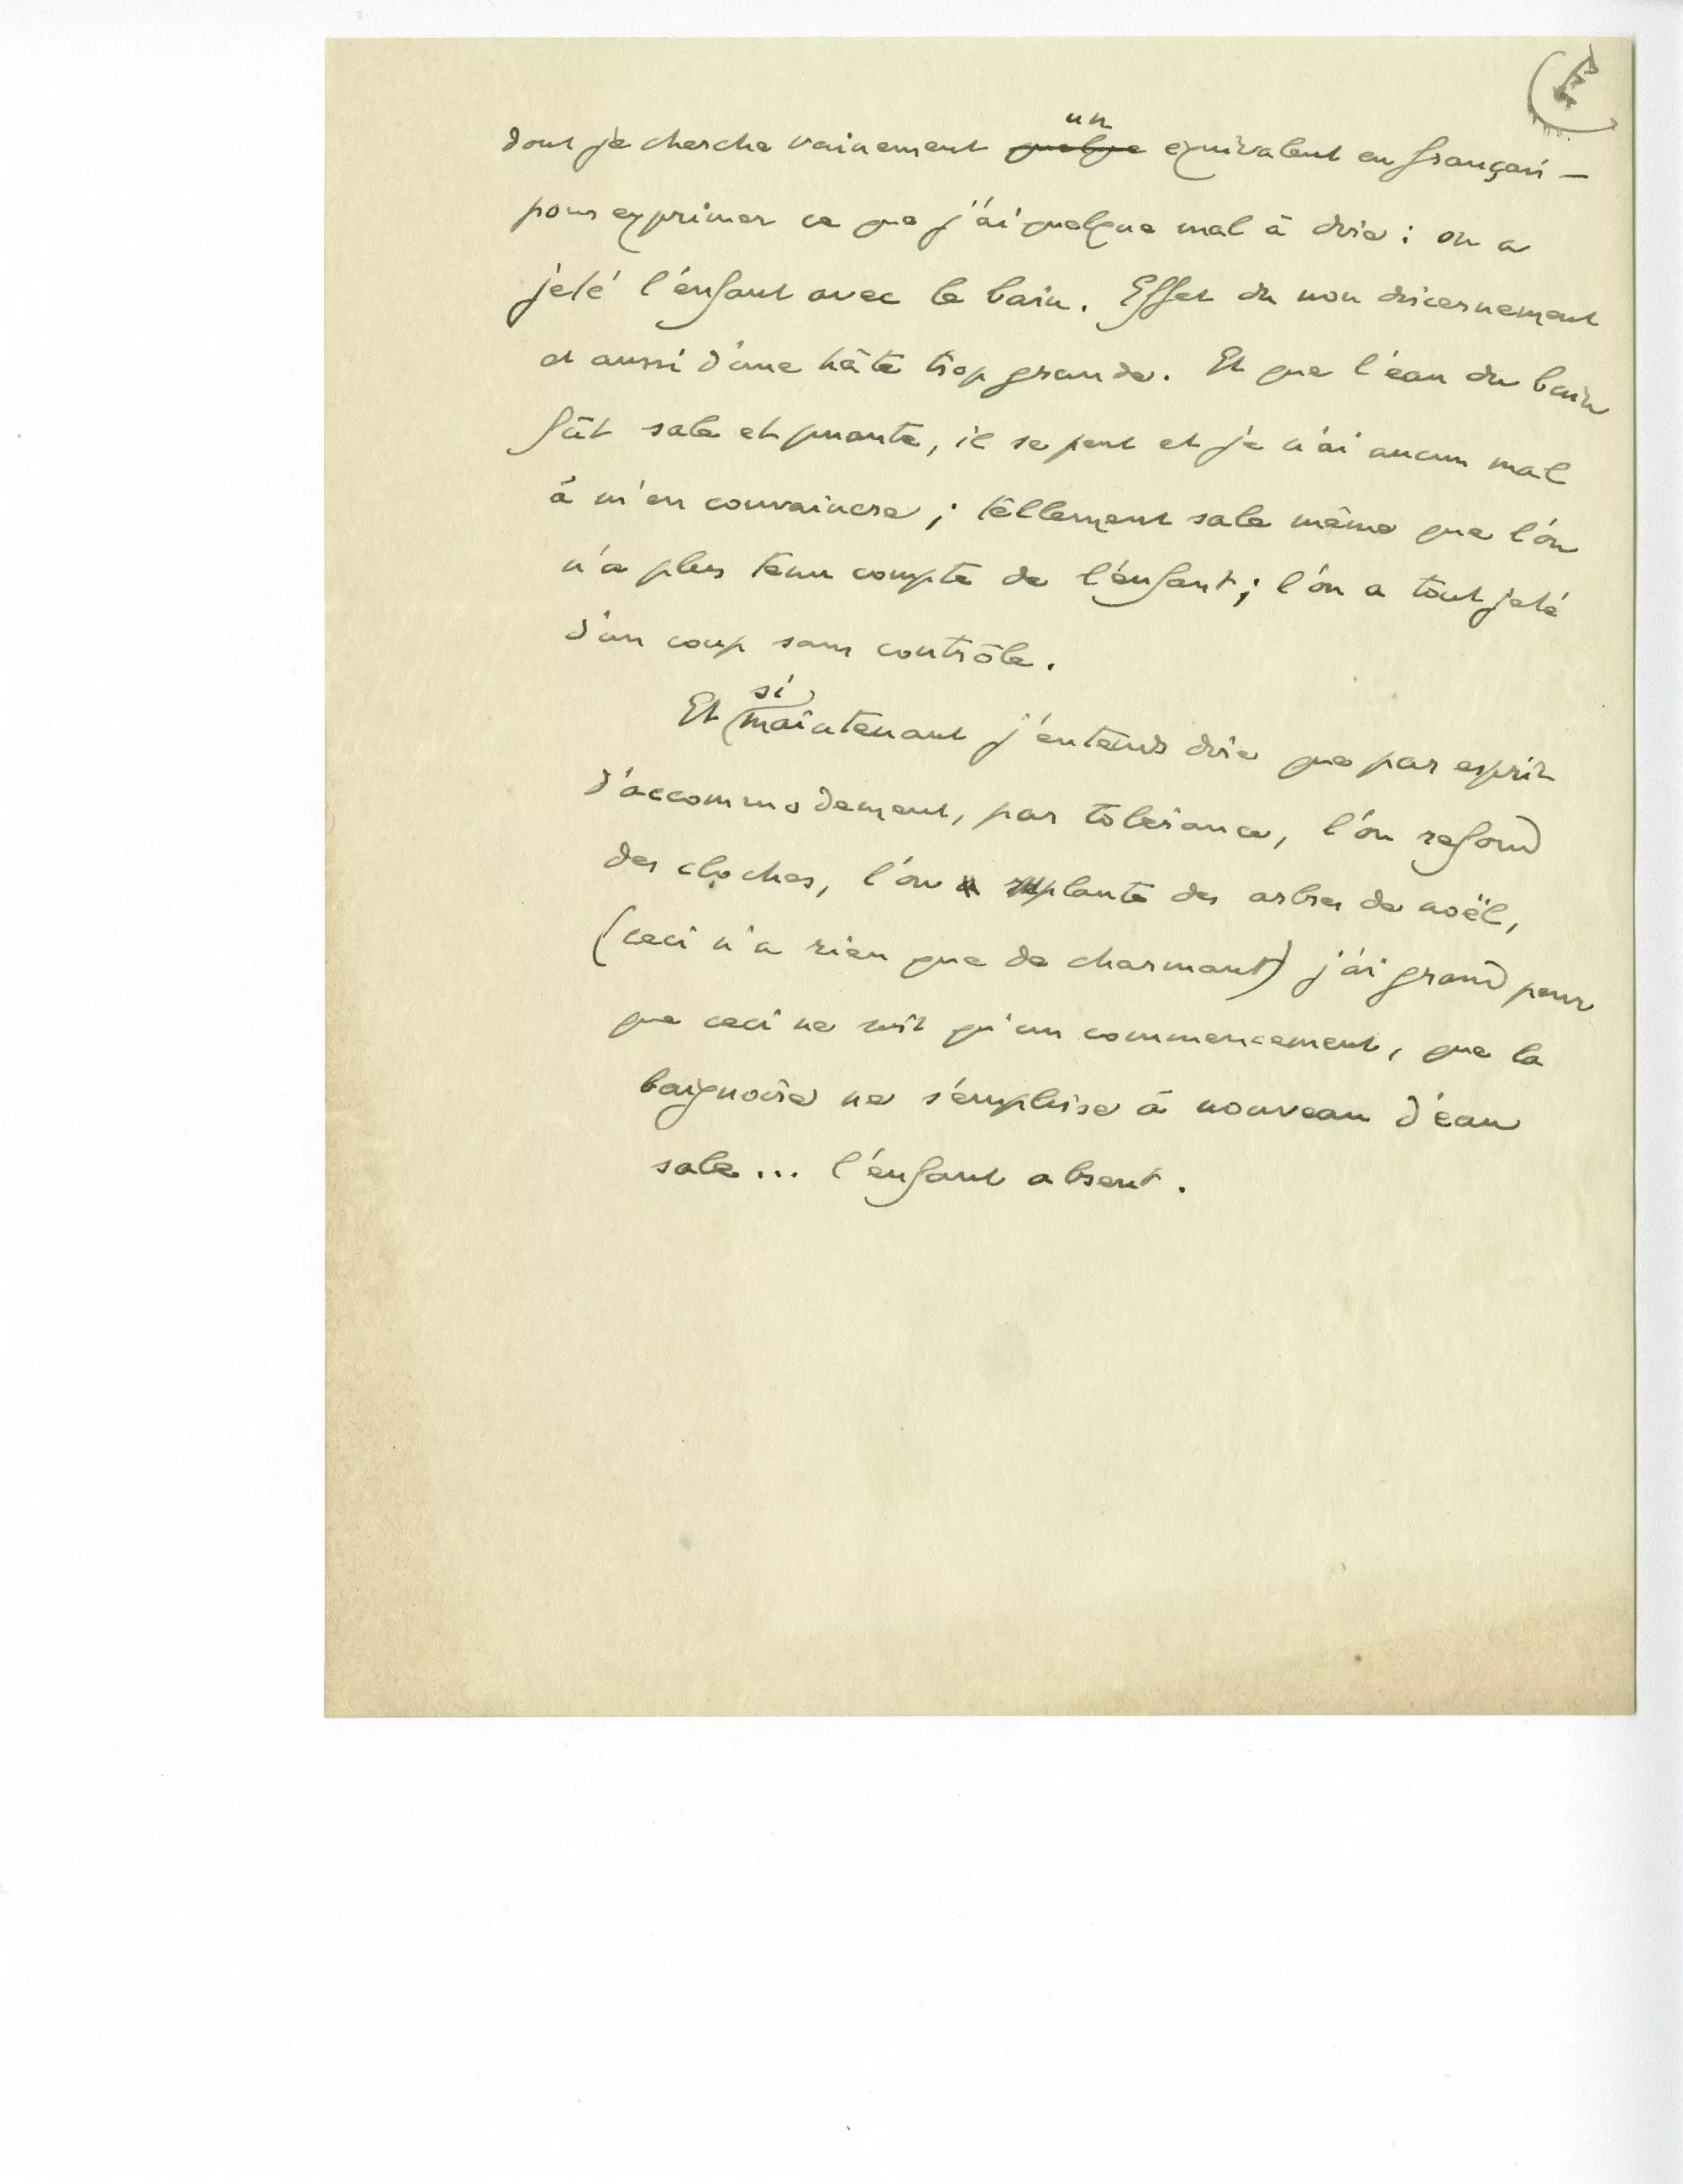 un
dont je cherche vainement quelque equivalent en français —
pour exprimer ce que j'ai quelque mal à dire : on a
jeté l'enfant avec le bain. Effet du non dicernement
et aussi d'une hâte trop grande. Et que l'eau du bain
fût sale et puante, il se peut et je n'ai aucun mal
à m'en convaincre ; tellement sale même que l'on
n'a plus tenu compte de l'enfant ; l'on a tout jeté
d'un coup sans contrôle.
si
Et maintenant j'entends dire que par esprit
d'accommodement, par tolérance, l'on refond
des cloches, l'on replante des arbres de noël,
(ceci n'a rien que de charmant) j'ai grand peur
que ceci ne soit qu'un commencement, que la
baignoire ne s'emplisse à nouveau d'eau
sale... l'enfant absent.